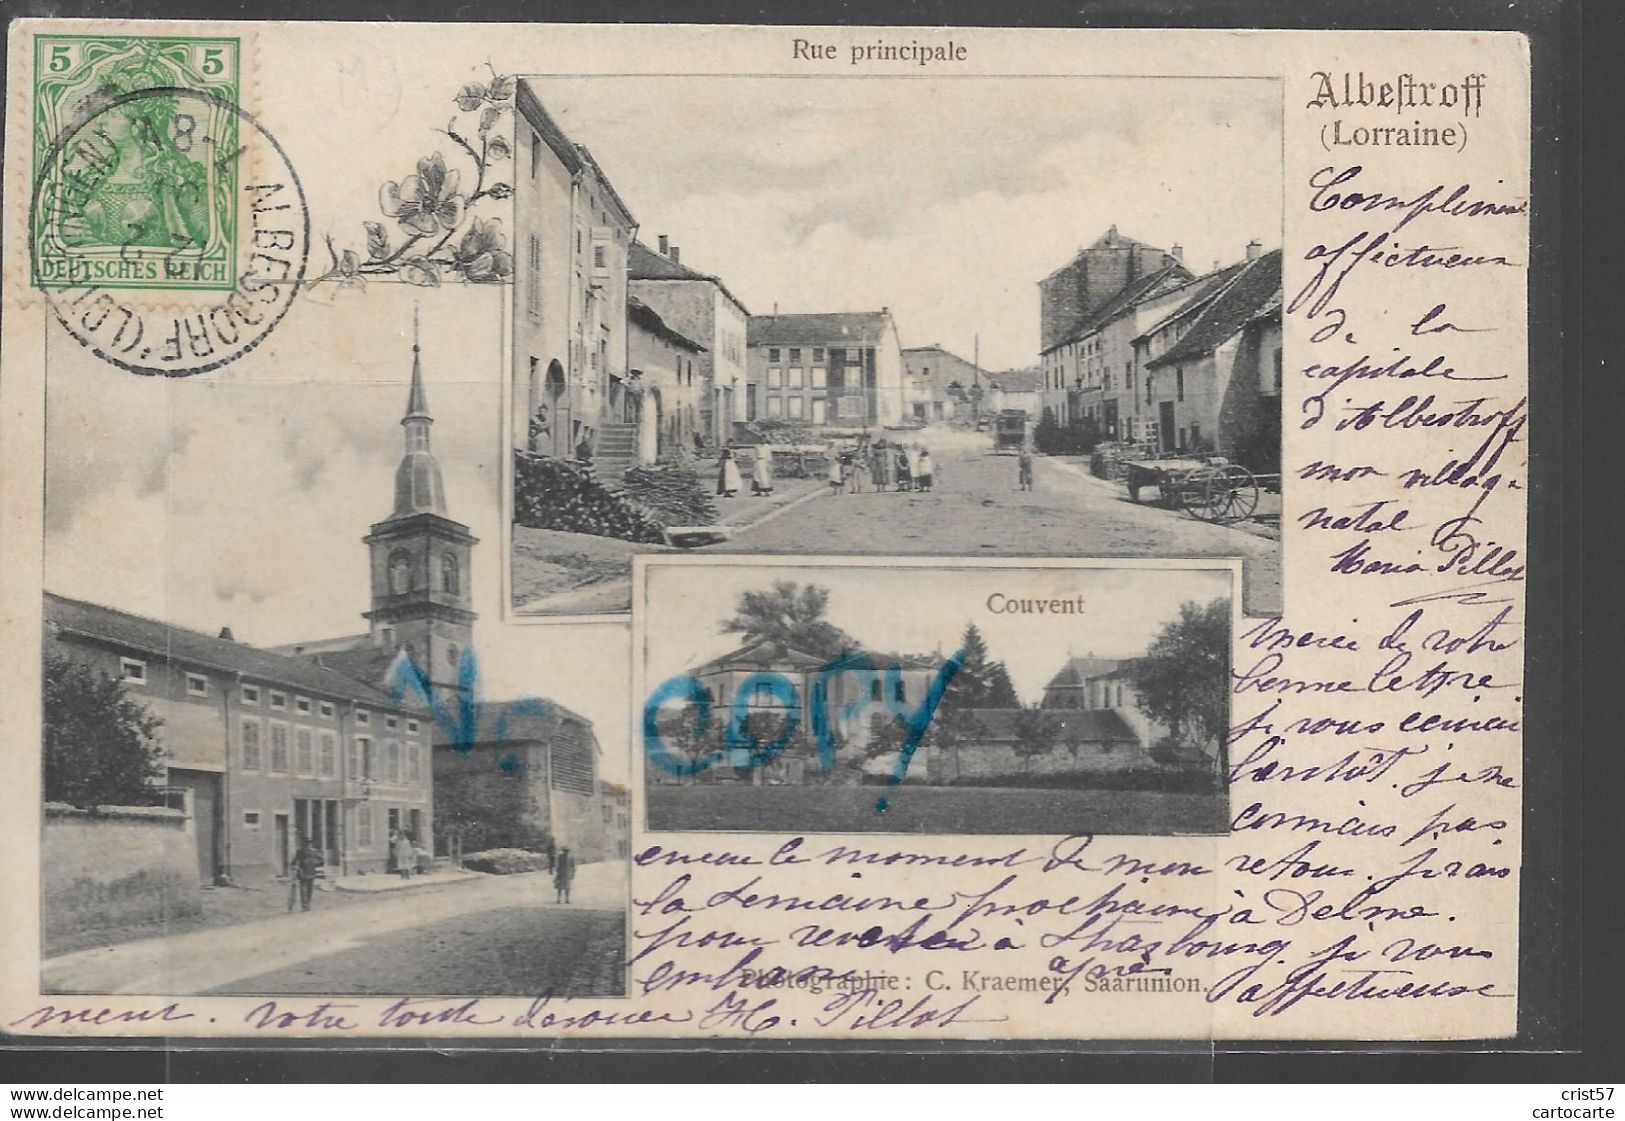 Rue principale
Albestroff
(Lorraine)
5 5
DEUTSCHES REICH
ALBESDORF (LOTHRINGEN)
7-8V
Compliments
affectueux
de la
capitale
d'Albestroff
mon village
natal
Maria Pillot
Couvent
merci de votre
bonne lettre
je vous
bientôt. je ne
connais pas
encore le moment de mon retour. j'irais
la semaine prochaine à Delme.
pour à Strasbourg. je vous
embrasse
Photographie: C. Kraemer, Saarunion.
affectueuse
ment. Votre toute dévouée H. Pillot
N: COPY
delcampe.net
delcampe.net
crist57
cartocarte